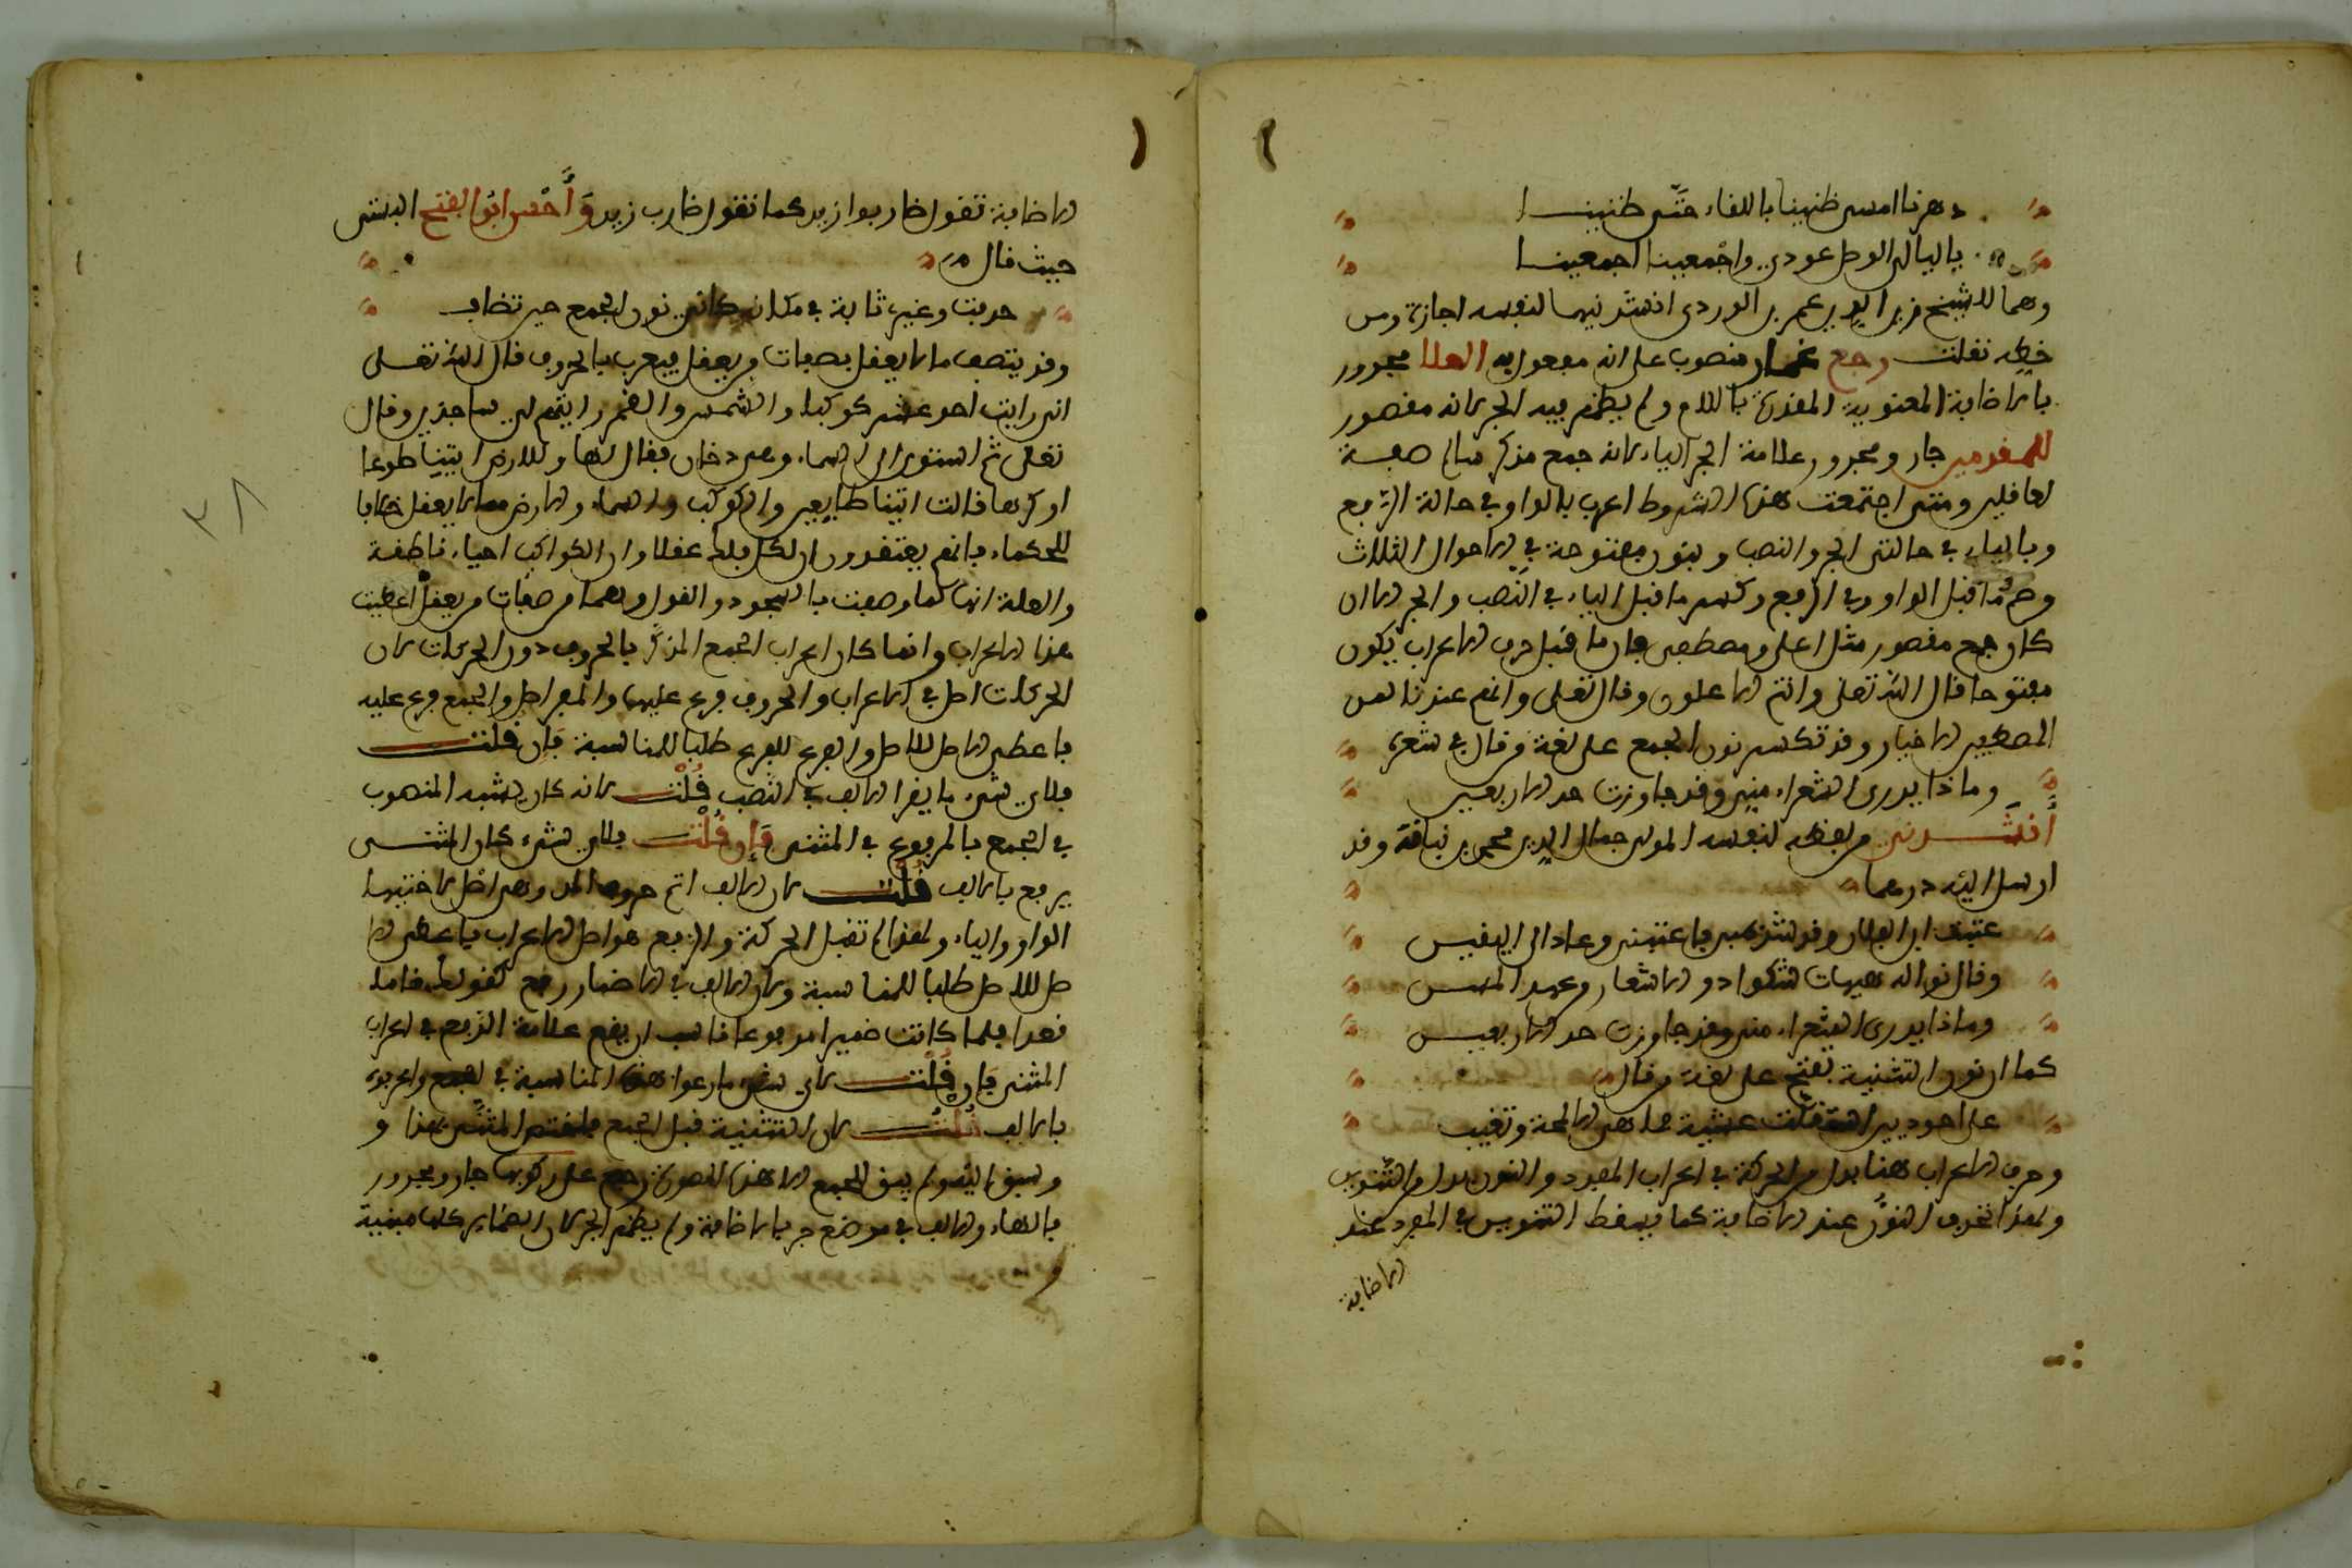 دهرنا امسى ظنينا باللقاء حتى ظنينا
يا ليالي الوصل عودي واجمعينا اجمعينا
وهما للشيخ زين الدين عمر بن الوردي انشدنيهما لنفسه اجازة ومن
خطه نقلت رجع غمار منصوب على انه مفعول به العلا مجرور
بالاضافة المعنوية المقدرة باللام ولم يظهر فيه الجر لانه مقصور
للمقدمين جار ومجرور علامة الجر الياء لانه جمع مذكر سالم صفة
لعاقلين ومتى اجتمعت هذه الشروط اعرب بالواو في حالة الرفع
وبالياء في حالتي الجر والنصب وبنون مفتوحة في الاحوال الثلاث
وضم ما قبل الواو في الرفع وكسر ما قبل الياء في النصب والجر الا ان
كان جمع مقصور مثل اعلى ومصطفى فان ما قبل حرف الاعراب يكون
مفتوحا قال الله تعلى وانتم الاعلون وقال تعلى وانهم عندنا لمن
المصطفين الاخيار وقد تكسر نون الجمع على لغة من قال في شعره
وماذا يدري الشعراء مني وقد جاوزت حد الاربعين
أنشدني من لفظه لنفسه المولى جمال الدين محمد بن نباتة وقد
ارسل اليه درهما
عتبت ابن العلاء وقد شكير فاعتبني وعاد الى اليقين
وقال نواله هيهات شكوا دو الاشعار وعهد المس
وماذا يدري الشعراء مني وقد جاوزت حد الاربعين
كما ان نون التثنية تفتح على لغة من قال
على احوذيين استقلت عشية فما هي الا لمحة وتغيب
وحرف الاعراب هنا بدل من الحركة في اعراب المفرد والنون بدل من التنوين
ولهذا تحذف النون عند الاضافة كما يسقط التنوين في المفرد عند
الاضافة
الاضافة تقول ضاربوا زيد كما تقول ضارب زيد وأحسن ابو الفتح البستى
حيث قال
حذفت وغيري ثابت في مكانه كاني نون الجمع حين تضاف
وقد يتصف ما لا يعقل بصفات من يعقل فيعرب بالحروف قال الله تعلى
اني رايت احد عشر كوكبا والشمس والقمر رايتهم لي ساجدين وقال
تعلى ثم استوى الى السماء وهي دخان فقال لها وللارض ايتيا طوعا
او كرها قالت اتينا طايعين والكوكب والسماء والارض مما لا يعقل خلافا
للحكماء فانهم يعتقدون ان لكل فلك عقلا وان الكواكب احياء ناطقة
والعلة انها لما وصفت بالسجود والقول وهما من صفات من يعقل اعطيت
هذا الاعراب وانما كان اعراب الجمع المذكر بالحروف دون الحركات لان
الحركات اصل في الاعراب والحروف فرع عليها والمفرد اصل والجمع فرع عليه
فاعطي الاصل للاصل والفرع للفرع طلبا للمناسبة فإن قلت
فلاي شيء ما يقرا الالف في النصب قلت لانه كان يشبه المنصوب
في الجمع بالمرفوع في المثنى فإن قلت فلاي شيء كان المثنى
يرفع بالالف قلت لان الالف اتم حروف المد وهي اصل لاختيها
الواو والياء ولهذا لم تقبل الحركة والرفع هو اصل الاعراب فاعطى الا
صل للاصل طلبا للمناسبة ولان الالف في الاضمار رفع كقولك قاما
قعدا فلما كانت ضميرا مرفوعا ناسب ان يقع علامة الرفع في اعراب
المثنى فان قلت لاي شيء ما رعوا هذه المناسبة في الجمع واعربوه
بالالف قلت لان التثنية قبل الجمع فاختص المثنى بهذا و
وسبق اليه ولم يبق للجمع الا هذه الصورة رجع على ركوبها جار ومجرور
بالهاء والالف في موضع جر بالاضافة ولم يظهر الجر لان الضماير كلها مبنية
و
٣٨